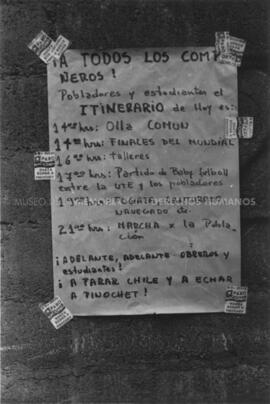 ¡A TODOS LOS COMPA
ÑEROS!
Pobladores y estudiantes el
ITINERARIO de Hoy es:
14 hrs: Olla COMÚN
14 hrs: FINALES DEL MUNDIAL
16 hrs: Talleres
17 hrs: Partido de Baby football
entre la UTE y los pobladores
19 hrs: FOGATA,
NAVEGADO etc.
21 hrs: MARCHA x la Pobla-
ción
¡ADELANTE, ADELANTE OBREROS y
estudiantes!
¡A PARAR CHILE Y A ECHAR
A PINOCHET!
MUSEO DE HUMANOS